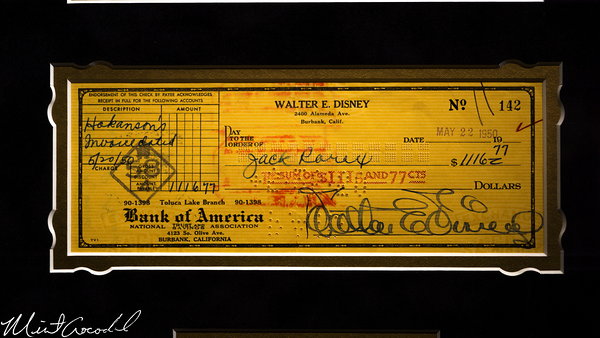 ENDORSEMENT OF THIS CHECK BY PAYEE ACKNOWLEDGES
RECEIPT IN FULL FOR THE FOLLOWING ACCOUNTS
DESCRIPTION AMOUNT
Hokanson's
Invoice dated
5/20/50
CHARGE
DISCOUNT
AMOUNT PAYABLE
1116 77
WALTER E. DISNEY
2400 Alameda Ave.
Burbank, Calif.
No 142
DATE MAY 22 1950 19
PAY
TO THE
ORDER OF Jack $1116 77
SUM OF $1116 AND 77 CTS
DOLLARS
90-1398 Toluca Lake Branch 90-1398
Bank of America
NATIONAL ASSOCIATION
4123 So. Olive Ave.
BURBANK, CALIFORNIA
Walter E. Disney